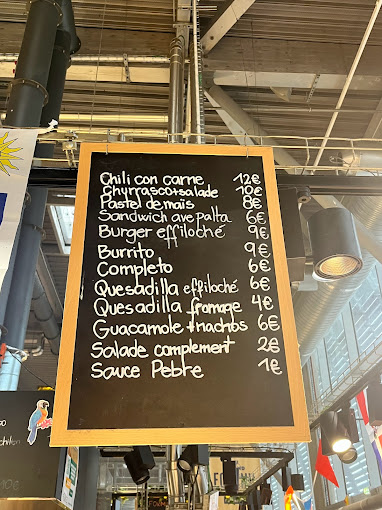 Chili con carne 12€
Churrasco+salade 10€
Pastel de mais 8€
Sandwich ave palta 6€
Burger effiloché 9€
Burrito 9€
Completo 6€
Quesadilla effiloché 6€
Quesadilla fromage 4€
Guacamole+nachos 6€
Salade complement 2€
Sauce Pebre 1€
10€